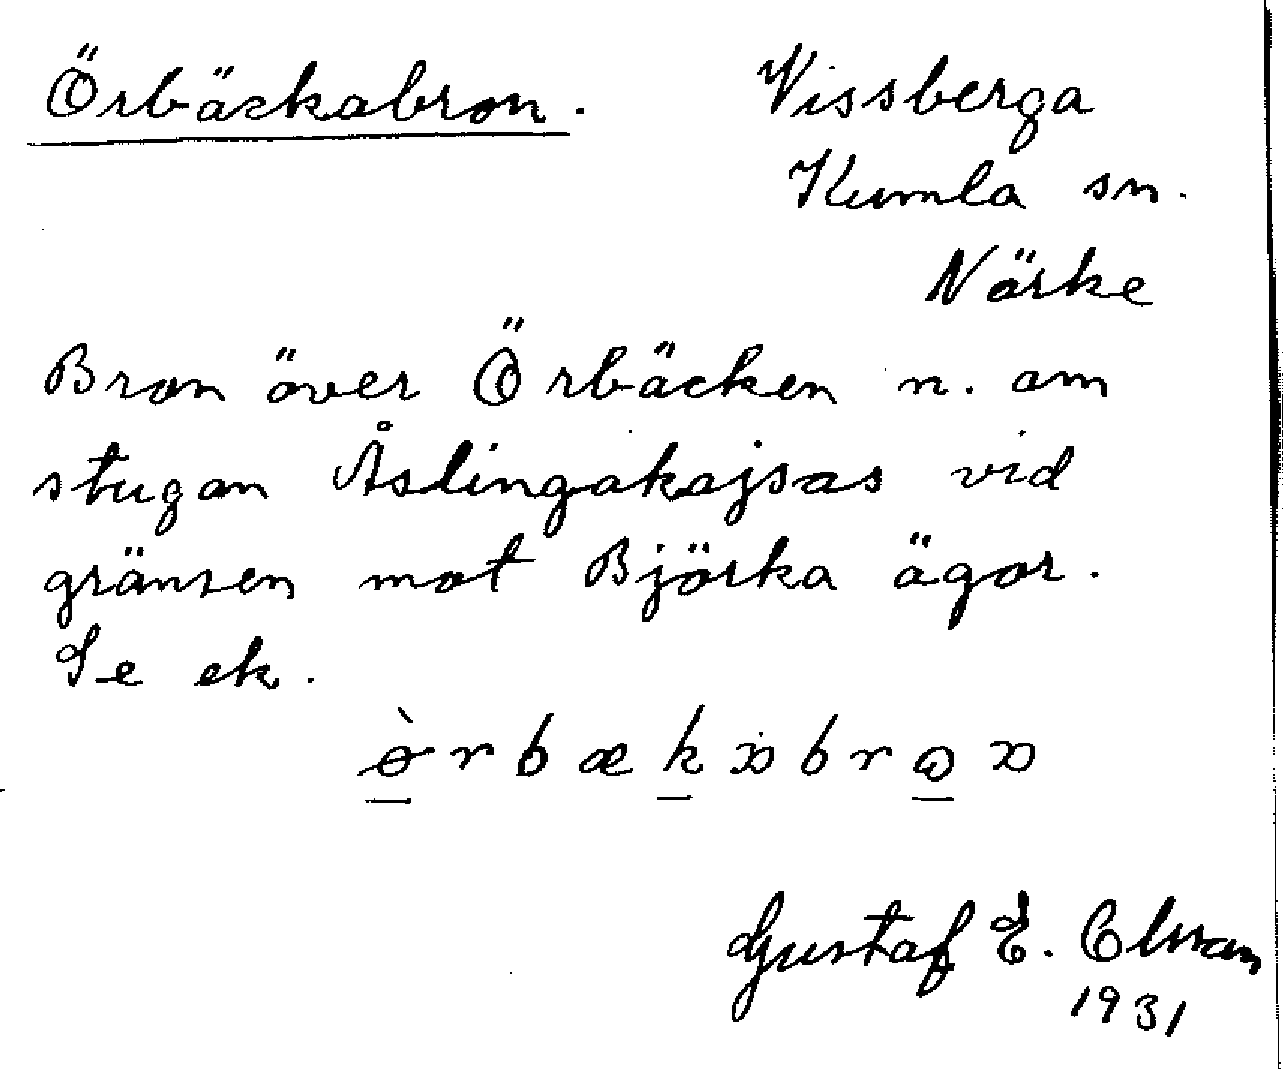 Örbäckabron.
Vissberga
Kumla sn.
Närke
Bron över Örbäcken n. om
stugan Åslingakajsas vid
gränsen mot Björka ägor.
Se ek.
Gustaf E. Olsson
1931